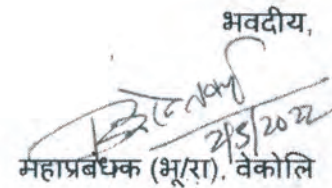 भवदीय,
2/5/2022
महाप्रबंधक (भू/रा). वेकोलि